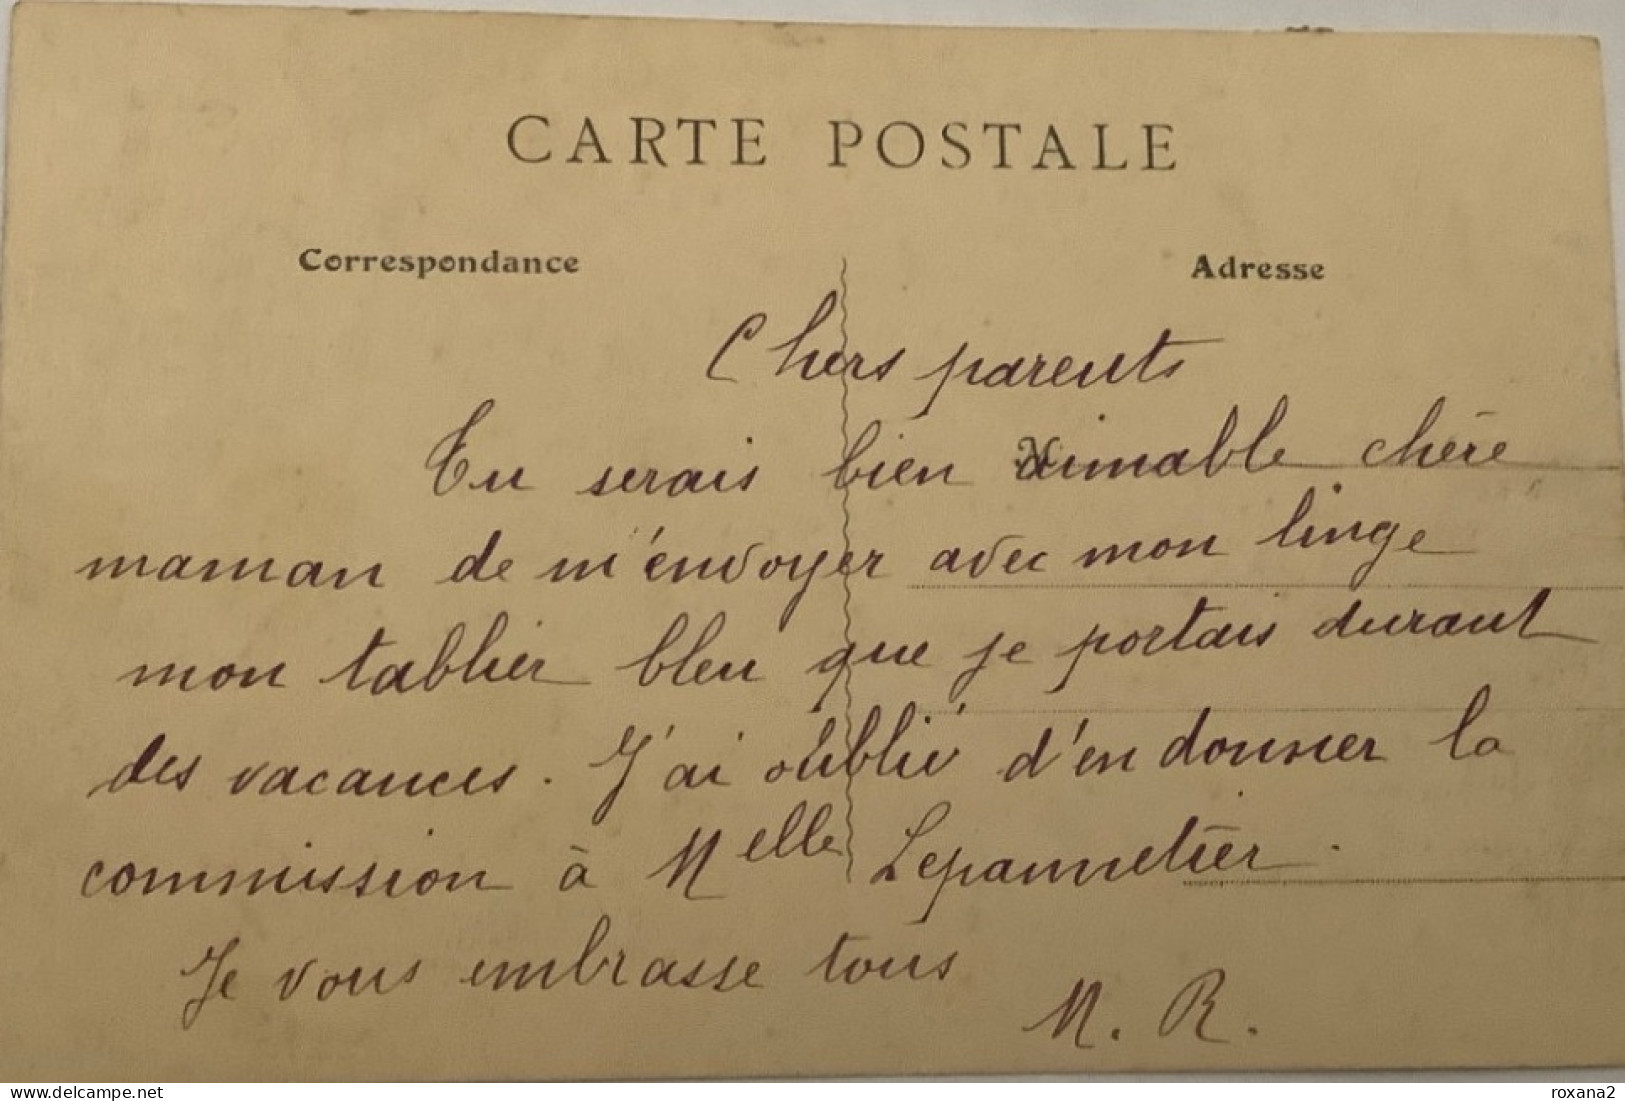 CARTE POSTALE
Correspondance Adresse
Chers parents
Tu serais bien aimable chère
maman de m'envoyer avec mon linge
mon tablier bleu que je portais durant
des vacances. J'ai oublié d'en donner la
commission à Melle Lepannetier.
Je vous embrasse tous
M. R.
www.delcampe.net roxana2